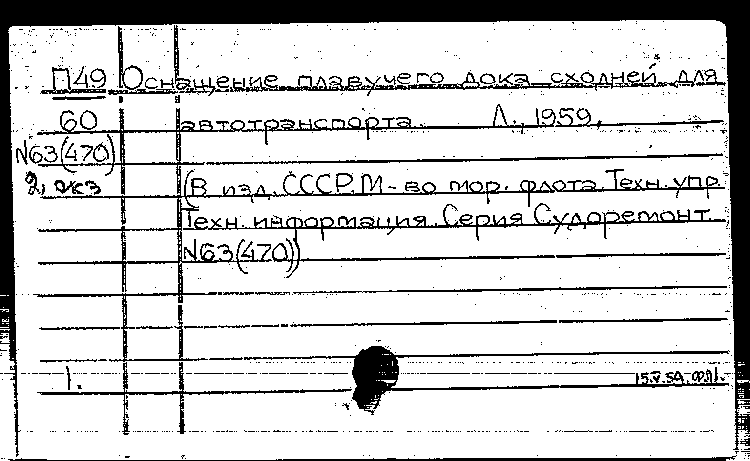 П49 Оснащение плавучего дока сходней для
60 автотранспорта. Л., 1959,
N63(470)
2, экз (В изд. СССР. М-во мор. флота. Техн. упр.
Техн. информация. Серия Судоремонт.
N63(470))
1.
15.V.59.